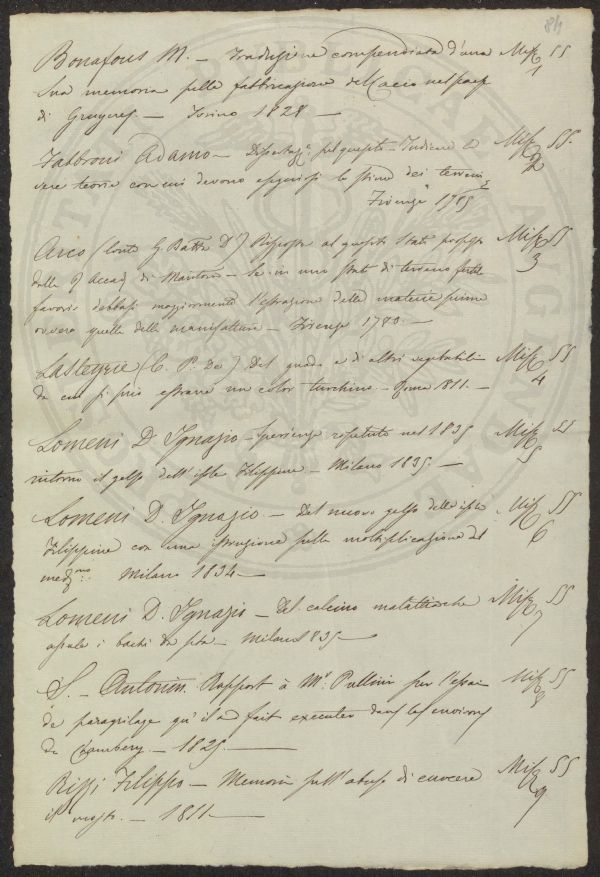 84
Bonafous M. — Traduzione compendiata d'una Misc. 55
sua memoria sulla fabbricazione del Cacio nel paese 1
di Gruyeres — Torino 1828 —
Fabbroni Adamo — sul quesito — Indicare le Misc. 55.
vere teorie con cui devono eseguirsi le stime dei terreni 2
Firenze 1785
Arco (Conte G. Batta D') Risposta al quesito Misc. 55
della Accad. di Mantova — Se in uno Stato di terreno fertile 3
favorir debbasi maggiormente l'estrazione delle materie prime
ovvero quella delle manifatture — Firenze 1780. —
Lasteyrie (C. P. De) Del guado e di altri vegetabili Misc. 55
da cui si può estrarre un color turchino — Roma 1811. — 4
Lomeni D. Ignazio — Sperienze ripetute nel 1835 Misc. 55
intorno il gelso dell'isole Filippine — Milano 1835. — 5
Lomeni D. Ignazio — Del nuovo gelso delle isole Misc. 55
Filippine con una istruzione sulla moltiplicazione del 6
medmo. Milano 1834 —
Lomeni D. Ignazio — Del calcino malattia che Misc. 55
assale i bachi da seta — Milano 1835 — 7
S. — Antonin. Rapport à Mr. Pullini sur l'essai Misc. 55
de paragrelage qu'il a fait executer dans les environs 8
de Chambery — 1825. —
Rissi Filippo — Memoria sull'abuso di cuocere Misc. 55
il mosto. — 1811 — 9